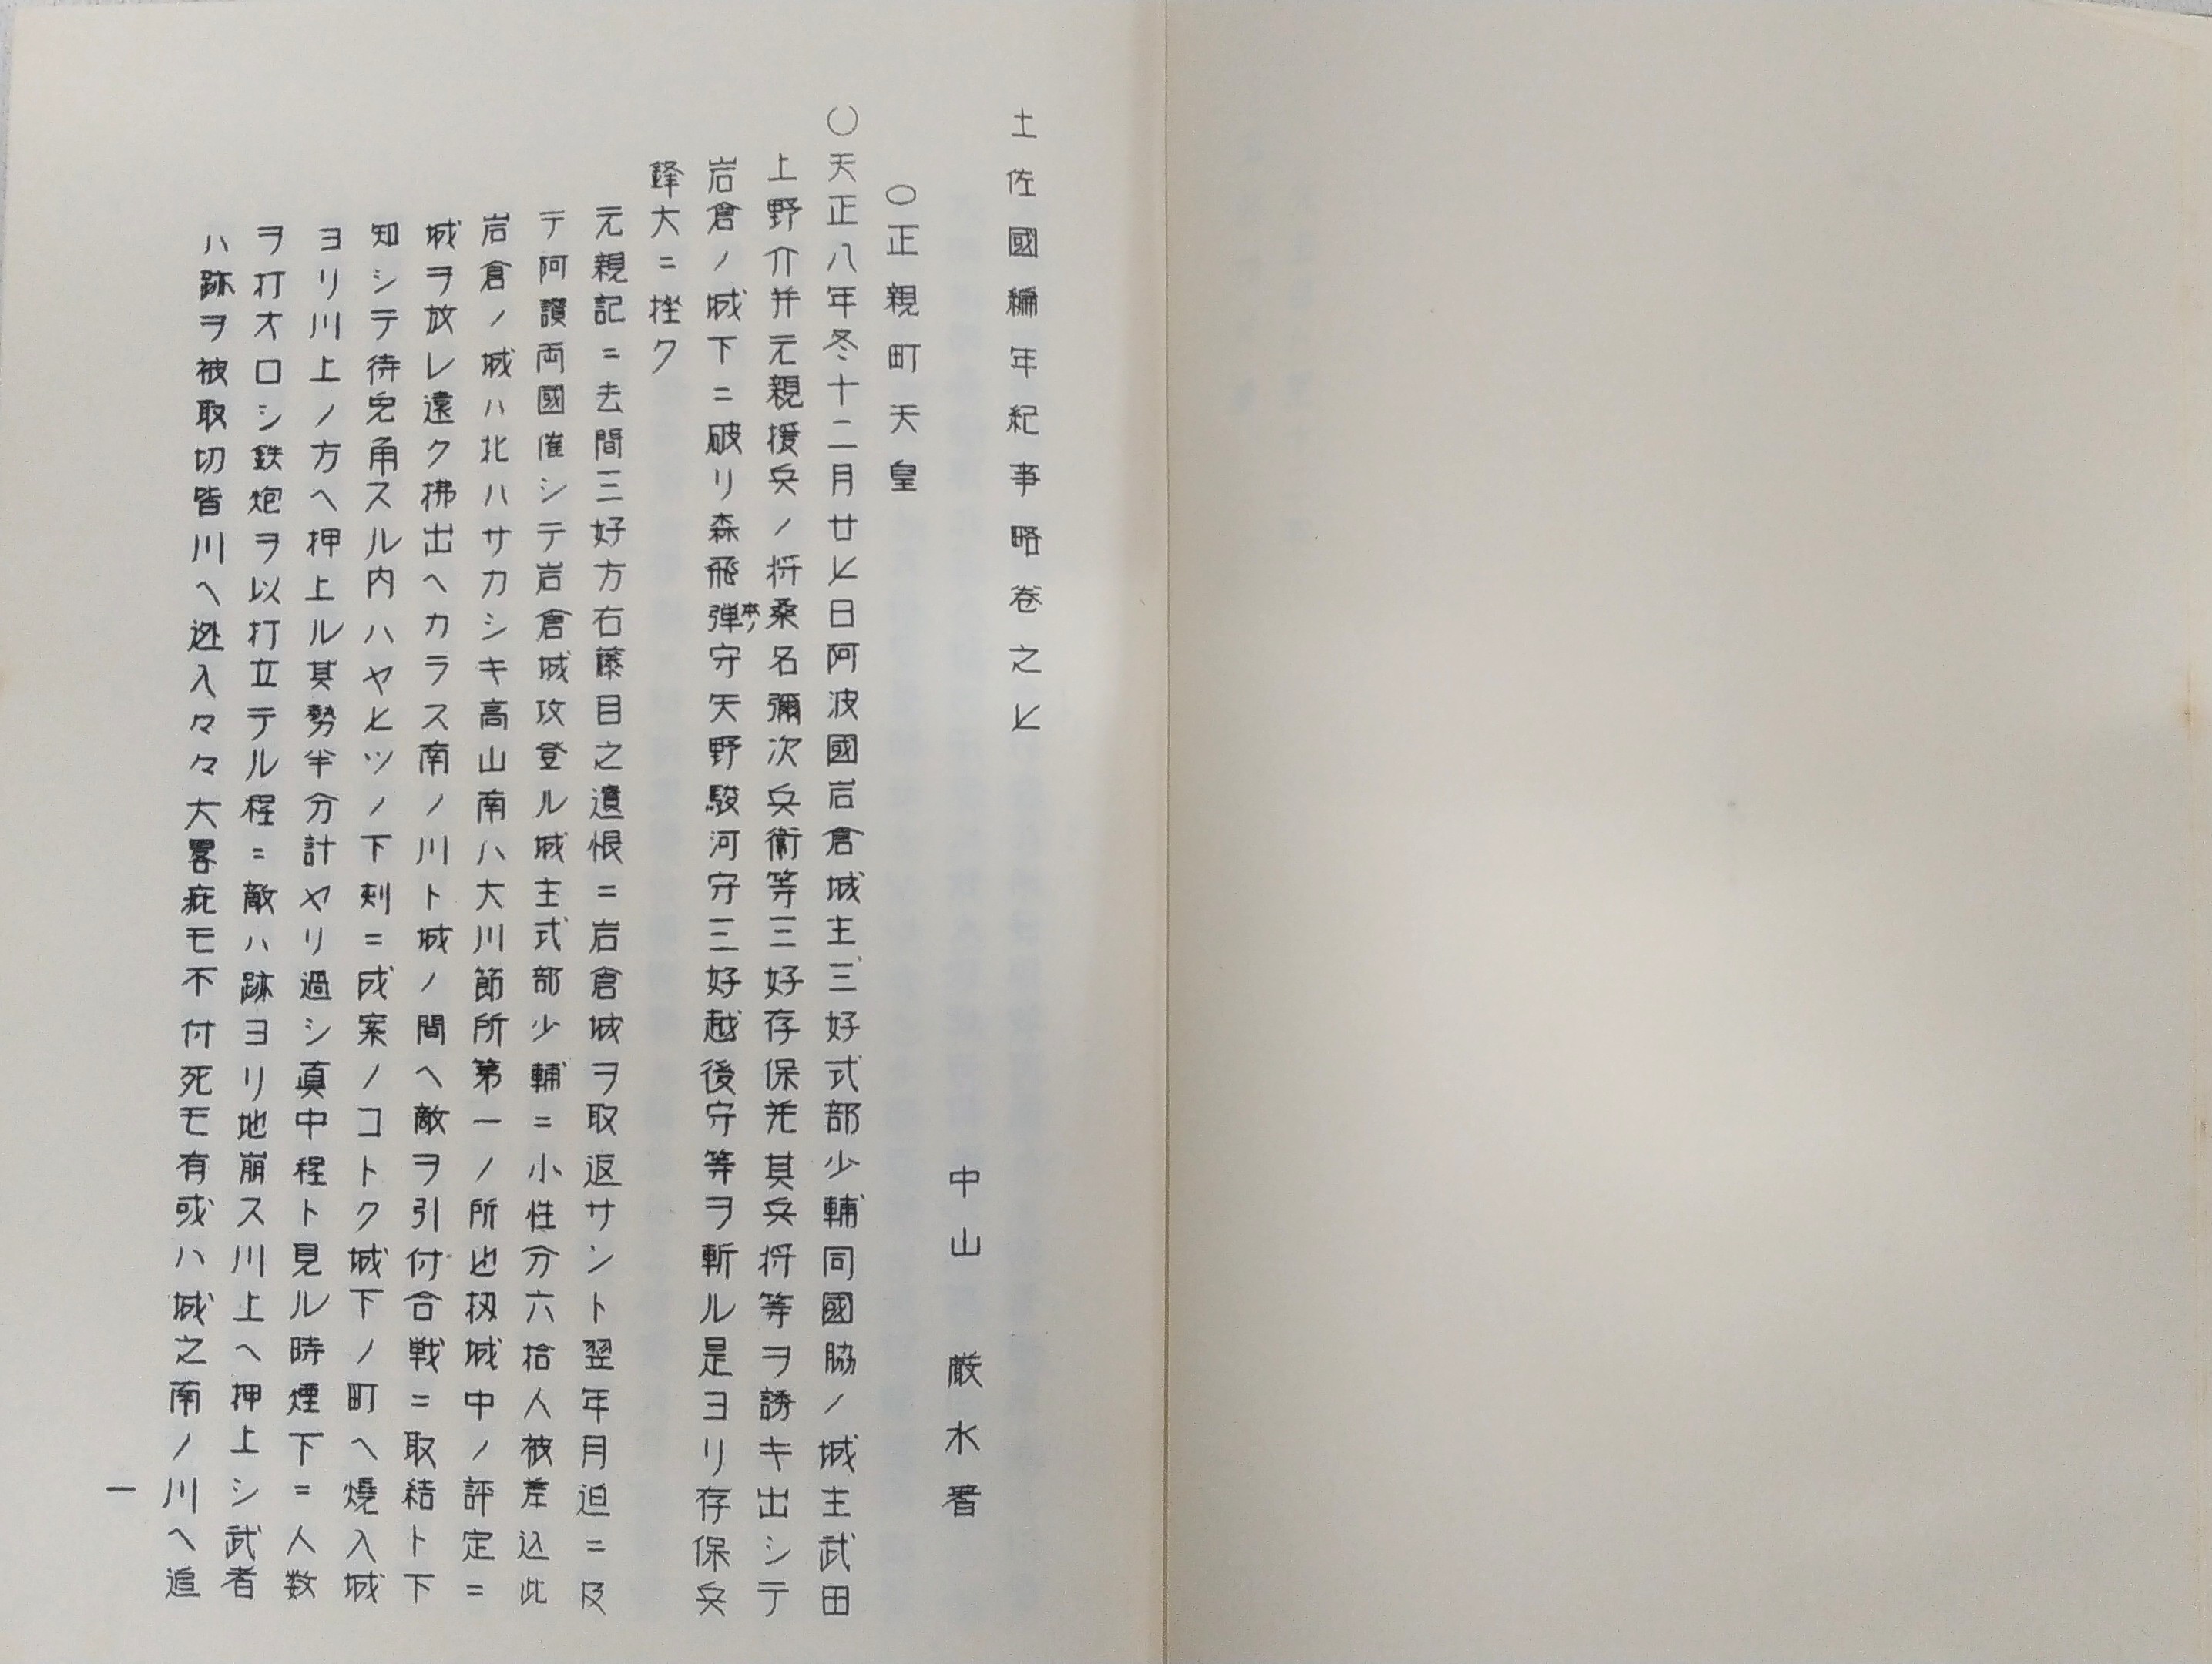 土佐國編年紀事略卷之七
中山 厳水 著
〇正親町天皇
〇天正八年冬十二月廿七日阿波國岩倉城主三好式部少輔同國脇ノ城主武田
上野介并元親援兵ノ将桑名彌次兵衛等三好存保并其兵将等ヲ誘キ出シテ
岩倉ノ城下ニ破リ森飛弾守矢野駿河守三好越後守等ヲ斬ル是ヨリ存保兵
鋒大ニ挫ク
元親記ニ去間三好方右藤目之遺恨ニ岩倉城ヲ取返サント翌年月迫ニ及
テ阿讃両國催シテ岩倉城攻登ル城主式部少輔ニ小性分六拾人被差込此
岩倉ノ城ハ北ハサカシキ高山南ハ大川節所第一ノ所也扨城中ノ評定ニ
城ヲ放レ遠ク拂出ヘカラス南ノ川ト城ノ間ヘ敵ヲ引付合戦ニ取結ト下
知シテ待兎角スル内ハヤヒツノ下刻ニ成案ノコトク城下ノ町ヘ焼入城
ヨリ川上ノ方ヘ押上ル其勢半分計ヤリ過シ真中程ト見ル時煙下ニ人数
ヲ打オロシ鉄炮ヲ以打立テル程ニ敵ハ跡ヨリ地崩ス川上ヘ押上シ武者
ハ跡ヲ被取切皆川ヘ逃入々々大畧疵モ不付死モ有或ハ城之南ノ川ヘ追
一